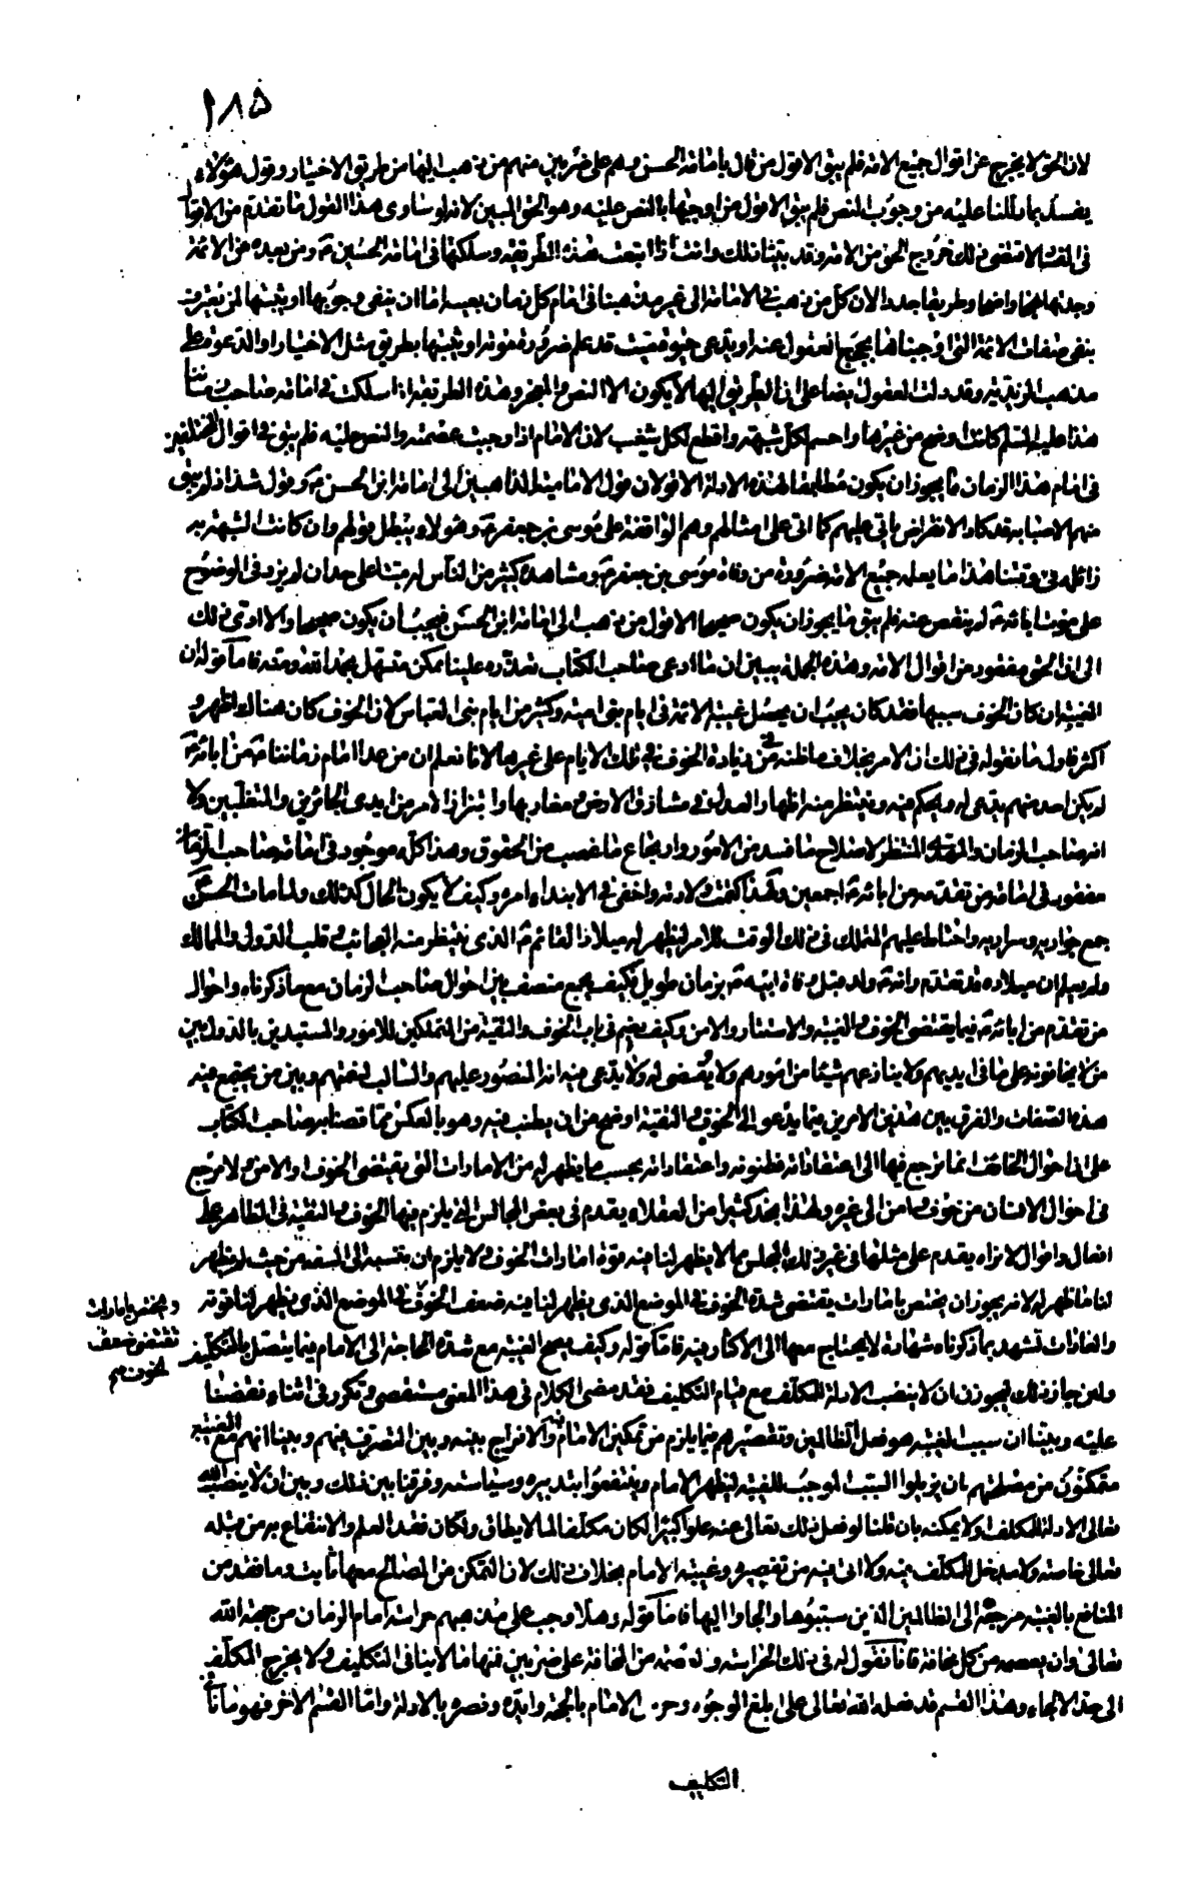 ١٨٥
لان الحق لا يخرج عن اقوال جميع الامة فلم يبق الا قول من قال بامامة الحسن وهم على ضربين منهم من يذهب اليها من طريق الاختيار وقول هؤلاء
يفسد بما دللنا عليه من وجوب النص فلم يبق الا قول من اوجبها بالنص عليه وهو الحق المبين لانه لو ساوى هذا القول ما تقدم من الاقوال
في الفساد لاقتضى ذلك خروج الحق من الامة وقد بينا ذلك وانت اذا اتبعت هذه الطريقة وسلكتها في امامة الحسين ع ومن بعده من الائمة
وجدتها واضحا وطريقا جددا لان كل من يذهب في الامامة الى غير مذهبنا في امام كل زمان بعينه اما ان ينفي وجوبها او يثبتها لمن يعترف
بنفي صفات الائمة التي اوجبناها بحجج العقول عنه او يدعى حيوة ميت قد علم ضرورة موته او يثبتها بطريق مثل الاختيار او الدعوة على
مذهب الزيدية وقد دلت العقول ايضا على ان الطريق اليها لا يكون الا النص والمعجز وهذه الطريقة اذا سلكت في امامة صاحب زماننا
هذا عليه السلم كانت اوضح من غيرها واحسم لكل شبهة واقطع لكل شغب لان الامام اذا وجبت عصمته والنص عليه فلم يبق في اقوال المختلفين
في امام هذا الزمان ما يجوز ان يكون مطابقا لهذه الادلة الا قولان قول الامامية الذاهبين الى امامة ابن الحسن ع وقول شذاذ لم يبق
منهم الا صبابة قد كاد الانقراض ياتي عليهم كما اتى على امثالهم وهم الواقفة على موسى بن جعفر ع وهؤلاء يبطل قولهم وان كانت الشبهة به
زائلة في وقتنا هذا ما يعلمه جميع الامة ضرورة من وفاة موسى بن جعفر ع ومشاهدة كثير من الناس له ميتا على حد ان لم يزد في الوضوح
على موت ابائه ع لم ينقص عنه فلم يبق ما يجوز ان يكون صحيحا الا قول من ذهب الى امامة ابن الحسن فيجب ان يكون صحيحا والا ادى ذلك
الى ان الحق مفقود من اقوال الامة وهذه الجملة يبين ان ما ادعى صاحب الكتاب تعذره علينا ممكن متسهل بحمد الله ومنه فاما قوله ان
الغيبة ان كان الخوف سببها فقد كان يجب ان يحصل غيبة الائمة في ايام بني امية وكثير من ايام بني العباس لان الخوف كان هنالك اظهر و
اكثر فاول ما نقوله في ذلك ان الامر بخلاف ما ظنه من زيادة الخوف في تلك الايام على غيرها لانا نعلم ان من عدا امام زماننا ع من ابائه ع
لم يكن احد منهم يدعى له ويحكم فيه وينتظر منه اظهار العدل في مشارق الارض ومغاربها وابتزاز الامر من ايدي الجائرين والمتغلبين ولا
انه صاحب الزمان والمهدي المنتظر لاصلاح ما فسد من الامور وارتجاع ما غصب من الحقوق وهذا كله موجود في امامة صاحب الزمان
مفقود في امامة من تقدمه من ابائه ع اجمعين ولهذا كتمت ولادته واخفى في الابتداء امره وكيف لا يكون الحال كذلك ولما مات الحسن
جمع جواريه وسراريه واحتاط عليهم الملك في ذلك الوقت للامر ليظهر له ميلاد القائم ع الذي ينتظر منه العجائب وقلب الدول والممالك
ولم يعلم ان ميلاده قد تقدم وانه ع ولد قبل وفاة ابيه ع بزمان طويل فكيف يجمع منصف بين احوال صاحب الزمان مع ما ذكرناه واحوال
من تقدم من ابائه ع فيما يقتضى الخوف والغيبة والاستتار والامن وكيف يقيم في باب الخوف والتقية من المتملكين للامور والمستبدين بالدول بين
من لا يخافونه على ما في ايديهم ولا ينازعهم شيئا من امورهم ولا يقضى له ولا يدعى فيه انه المنصور عليهم والسالب لنعمتهم وبين من يجتمع فيه
هذه الصفات والفرق بين هذين الامرين فيما يدعو الى الخوف والتقية اوضح من ان يطنب فيه وهو بالعكس مما قضنا به صاحب الكتاب
على ان احوال الخائف انما نرجع فيها الى اعتقاداته وظنونه واعتقاداته بحسب ما يظهر له من الامارات التي يقتضى الخوف او الامن ولا مرجع
في احوال الانسان من خوف وامن الى غيره ولهذا نجد كثيرا من العقلاء يقدم في بعض المجالس التي يلزم فيها الخوف والتقية في الظاهر على
افعال واقوال لا نراه يقدم على مثلها في غير ذلك المجلس مما لا يظهر لنا فيه قوة امارات الخوف ولا يلزم ان ننسبه الى السفه من حيث لم يظهر
لنا ما ظهر له لانه يجوز ان يختص بامارات يقتضى شدة الخوف في الموضع الذي يظهر لنا فيه ضعف الخوف في الموضع الذي يظهر لنا قوته
ويختص بامارات
تقتضى ضعف
الخوف صح
والعادات تشهد بما ذكرناه شهادة لا يحتاج معها الى الاكثار فيه فاما قوله وكيف يصح الغيبة مع شدة الحاجة الى الامام فيما يتصل بالتكليف
ولئن جاز ذلك ليجوزن ان لا ينصب الادلة للمكلف مع قيام التكليف فقد مضى الكلام في هذا المعنى مستقصى وتكرر في اثناء نقضنا
عليه وبينا ان سبب الغيبة هو فعل الظالمين وتقصيرهم فيما يلزم من تمكين الامام والافراج بينه وبين التصرف فيهم وبينا انهم مع الغيبة
متمكنون من مصلحتهم بان يزيلوا السبب الموجب للغيبة ليظهر الامام وينتفعوا بتدبيره وسياسته وفرقنا بين ذلك وبين ان لا ينصب الله
تعالى الادلة للمكلف او لا يمكنه بان قلنا لو فعل ذلك تعالى عنه علوا كبيرا لكان مكلفا لما لا يطاق ولكان فقد العلم والانتفاع به من قبله
تعالى خاصة ولا مدخل للمكلف فيه ولا اتى فيه من تقصيره وغيبة الامام بخلاف ذلك لان التمكن من المصالح معها ثابت وما فقد من
المنافع بالغيبة مرجعه الى الظالمين الذين سببوها والجاوا اليها فاما قوله وهلا وجب على مذهبهم حراسة امام الزمان من جهة الله
تعالى وان يعصمه من كل مخافة فانا نقول له في ذلك الحراسة والعصمة من المخافة على ضربين فمنها ما لا ينافي التكليف ولا يخرج المكلف
الى حد الالجاء وهذا القسم قد فعله الله تعالى على ابلغ الوجوه وحرس الامام بالحجة وايده ونصره بالادلة واما القسم الاخر فهو ما نافى
التكليف